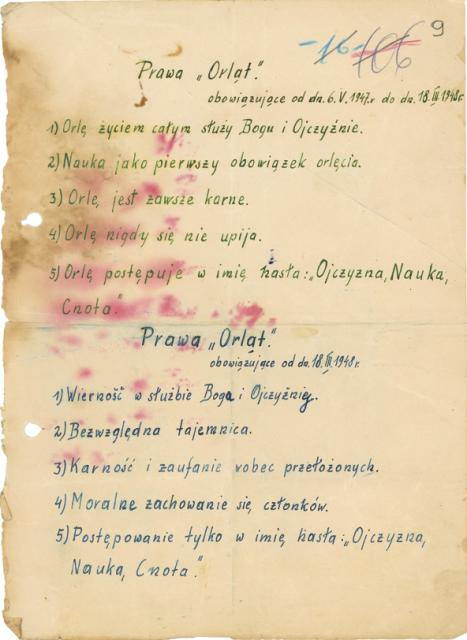 9
-16-
106
Prawa „Orląt".
obowiązujące od dn. 6.V.1947.r do dn. 18.III.1948r.
1) Orlę życiem całym służy Bogu i Ojczyźnie.
2) Nauka jako pierwszy obowiązek orlęcia.
3) Orlę, jest zawsze karne.
4) Orlę nigdy się nie upija.
5) Orlę postępuje w imię hasła: „Ojczyzna, Nauka,
Cnota."
Prawa „Orląt".
obowiązujące od dn. 18.III.1948r.
1) Wierność w służbie Boga i Ojczyźnie.
2) Bezwzględna tajemnica.
3) Karność i zaufanie wobec przełożonych.
4) Moralne zachowanie się członków.
5) Postępowanie tylko w imię hasła: „Ojczyzna,
Nauka, Cnota."